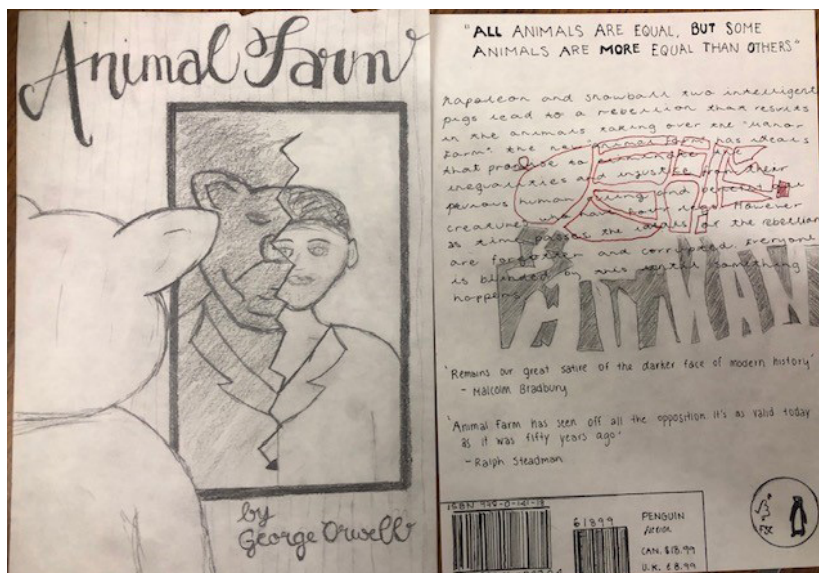 Animal Farm
by
George Orwell
"ALL ANIMALS ARE EQUAL, BUT SOME
ANIMALS ARE MORE EQUAL THAN OTHERS"
Napoleon and Snowball two intelligent
pigs lead to a rebellion that results
in the animals taking over the "Manor
Farm". the new "animal farm" has ideals
that promise to the
inequalities and injustice from their
previous human being and benefits
creatures who have four legs. However
as time passes the ideals of the rebellion
are forgotten and corrupted. Everyone
is blinded by this until something
happens
'Remains our great satire of the darker face of modern history'
- Malcolm Bradbury
'Animal Farm has seen off all the opposition. It's as valid today
as it was fifty years ago'
- Ralph Steadman
61899
PENGUIN
Fiction
CAN. $18.99
U.K. £8.99
FSC